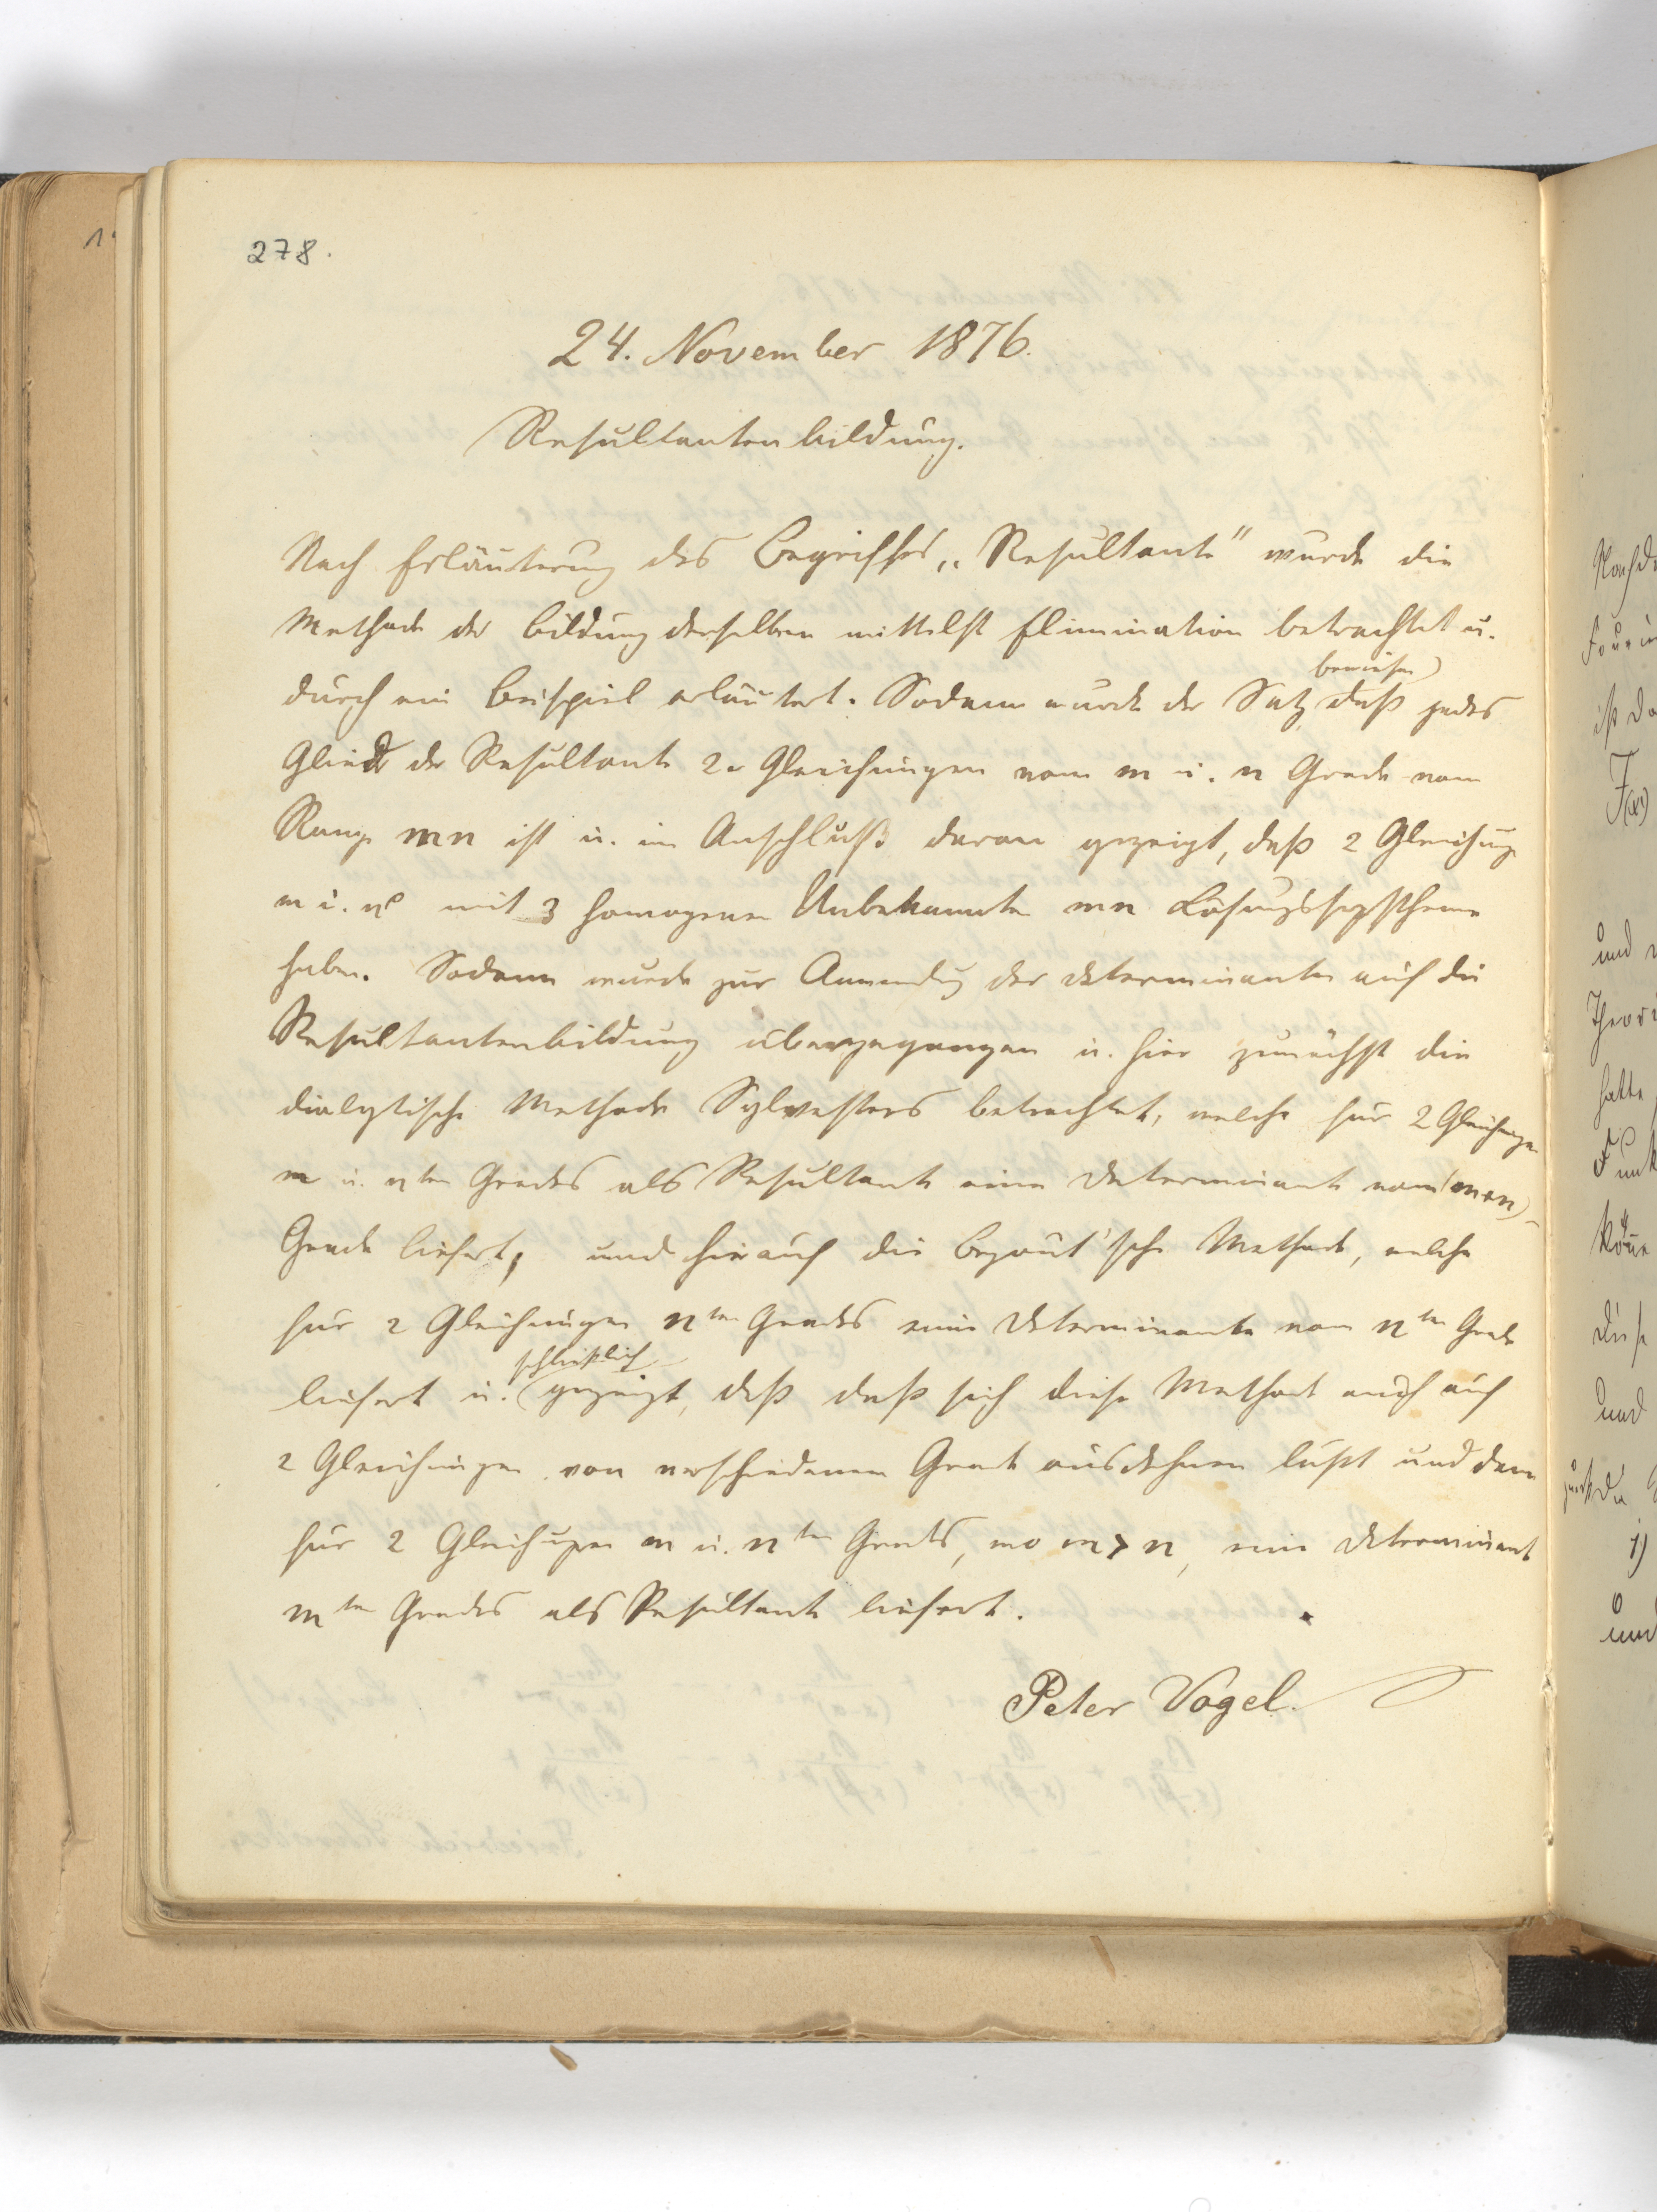 278.
24. November 1876.
Resultantenbildung.
Nach Erläuterung des Begriffes „Resultante" wurde die
Methode der Bildung derselben mittelst Elimination betrachtet u.
durch ein Beispiel erläutert. Sodann wurde der Satz bewiesen, daß jedes
Glied der Resultante 2er Gleichungen vom m u. n Grade vom
Range mn ist u. im Anschluß daran gezeigt, daß 2 Gleichung
m u. n mit 3 homogenen Unbekannten mn Lösungssystheme
haben. Sodann wurde zur Anwendg der Determinanten auf die
Resultantenbildung übergegangen u. hier zunächst die
dialytische Methode Sylvesters betrachtet, welche für 2 Gleichungen
m u. nten Grades als Resultante eine Determinante vom (m+n)
Grade liefert, und hierauf die Bezout'sche Methode, welche
für 2 Gleichungen nten Grades eine Determinante vom nten Grade
liefert u. schließlich gezeigt, daß daß sich diese Methode auch auf
2 Gleichungen von verschiedenem Grade ausdehnen läßt und dann
für 2 Gleichungen m u. nten Grades, wo m > n, eine Determinante
mten Grades als Resultante liefert.
Peter Vogel.